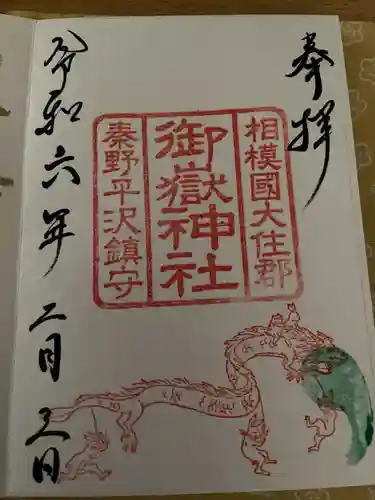 奉拝
相模國大住郡
御嶽神社
秦野平沢鎮守
令和六年二月三日